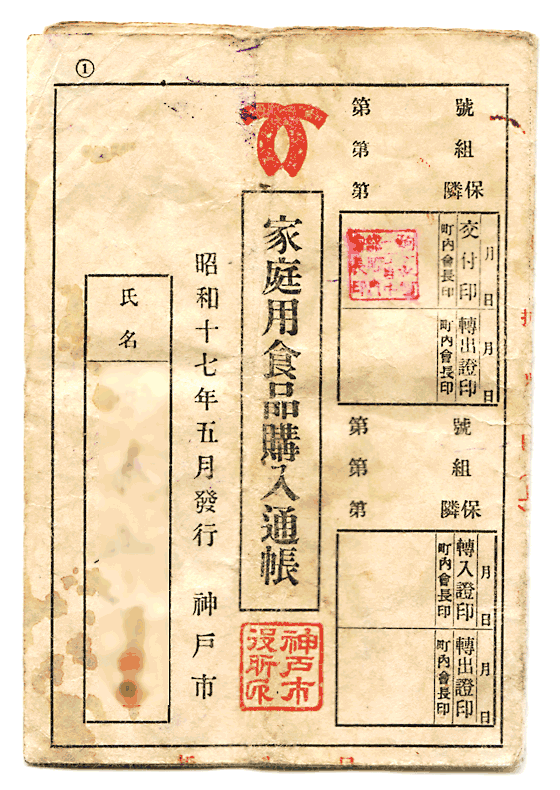 ①
第　號
第　組
第　隣保
交付印
月　日
町內會長印
轉出證印
月　日
町內會長印
第　號
第　組
第　隣保
轉入證印
月　日
町內會長印
轉出證印
月　日
町內會長印
家庭用食品購入通帳
神戸市役所印
昭和十七年五月發行　神戸市
氏名